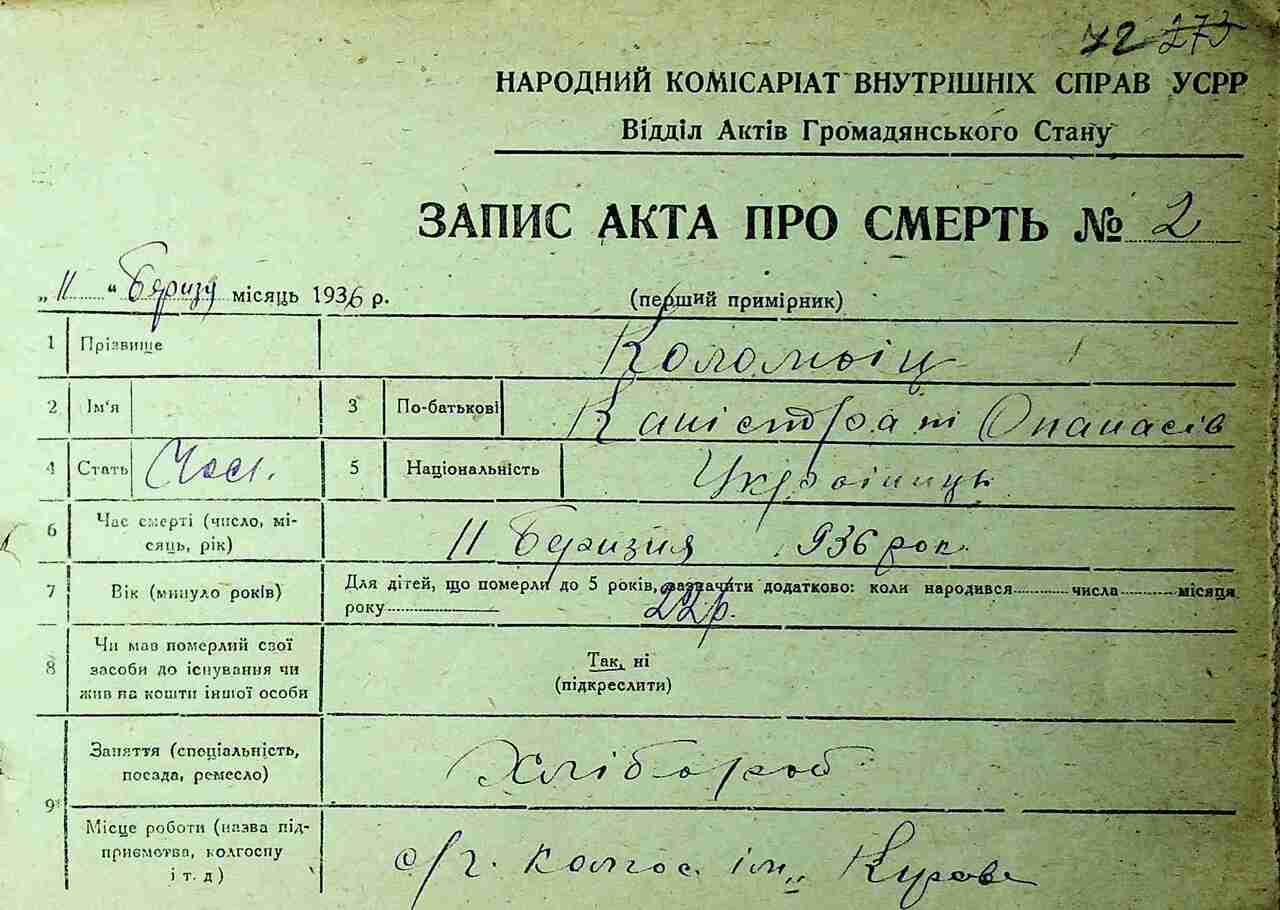 72 273
НАРОДНИЙ КОМІСАРІАТ ВНУТРІШНІХ СПРАВ УСРР
Відділ Актів Громадянського Стану
ЗАПИС АКТА ПРО СМЕРТЬ № 2
„11“ Березня місяць 1936 р. (перший примірник)
1 Прізвище Коломыіц
2 Ім'я 3 По-батькові Каністрат Опанасів
4 Стать Чол. 5 Національність Українець
6 Час смерті (число, мі-
сяць, рік) 11 Беризня 1936 рок.
7 Вік (минуло років) Для дітей, що померли до 5 років, зазначити додатково: коли народився числа місяця
року 22 р.
8 Чи мав померлий свої
засоби до існування чи
жив на кошти іншої особи
Так, ні
(підкреслити)
9 Заняття (спеціальність,
посада, ремесло) Хлібороб
Місце роботи (назва під-
приємства, колгоспу
і т. д) с/г. колгос. ім.